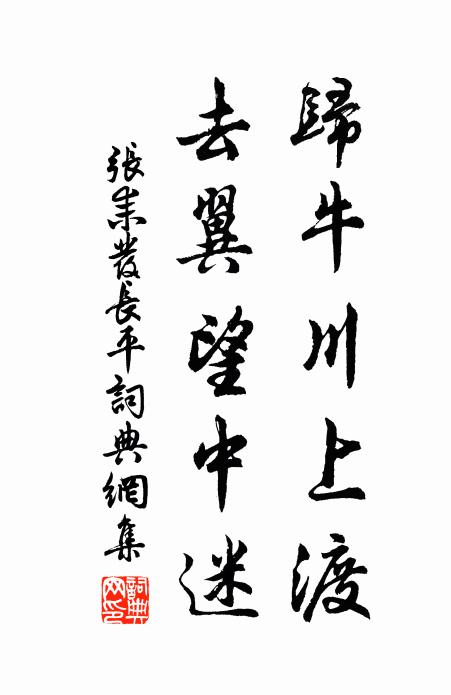 歸牛川上渡
去翼望中迷
張耒發長平詞典網集
詞典網印